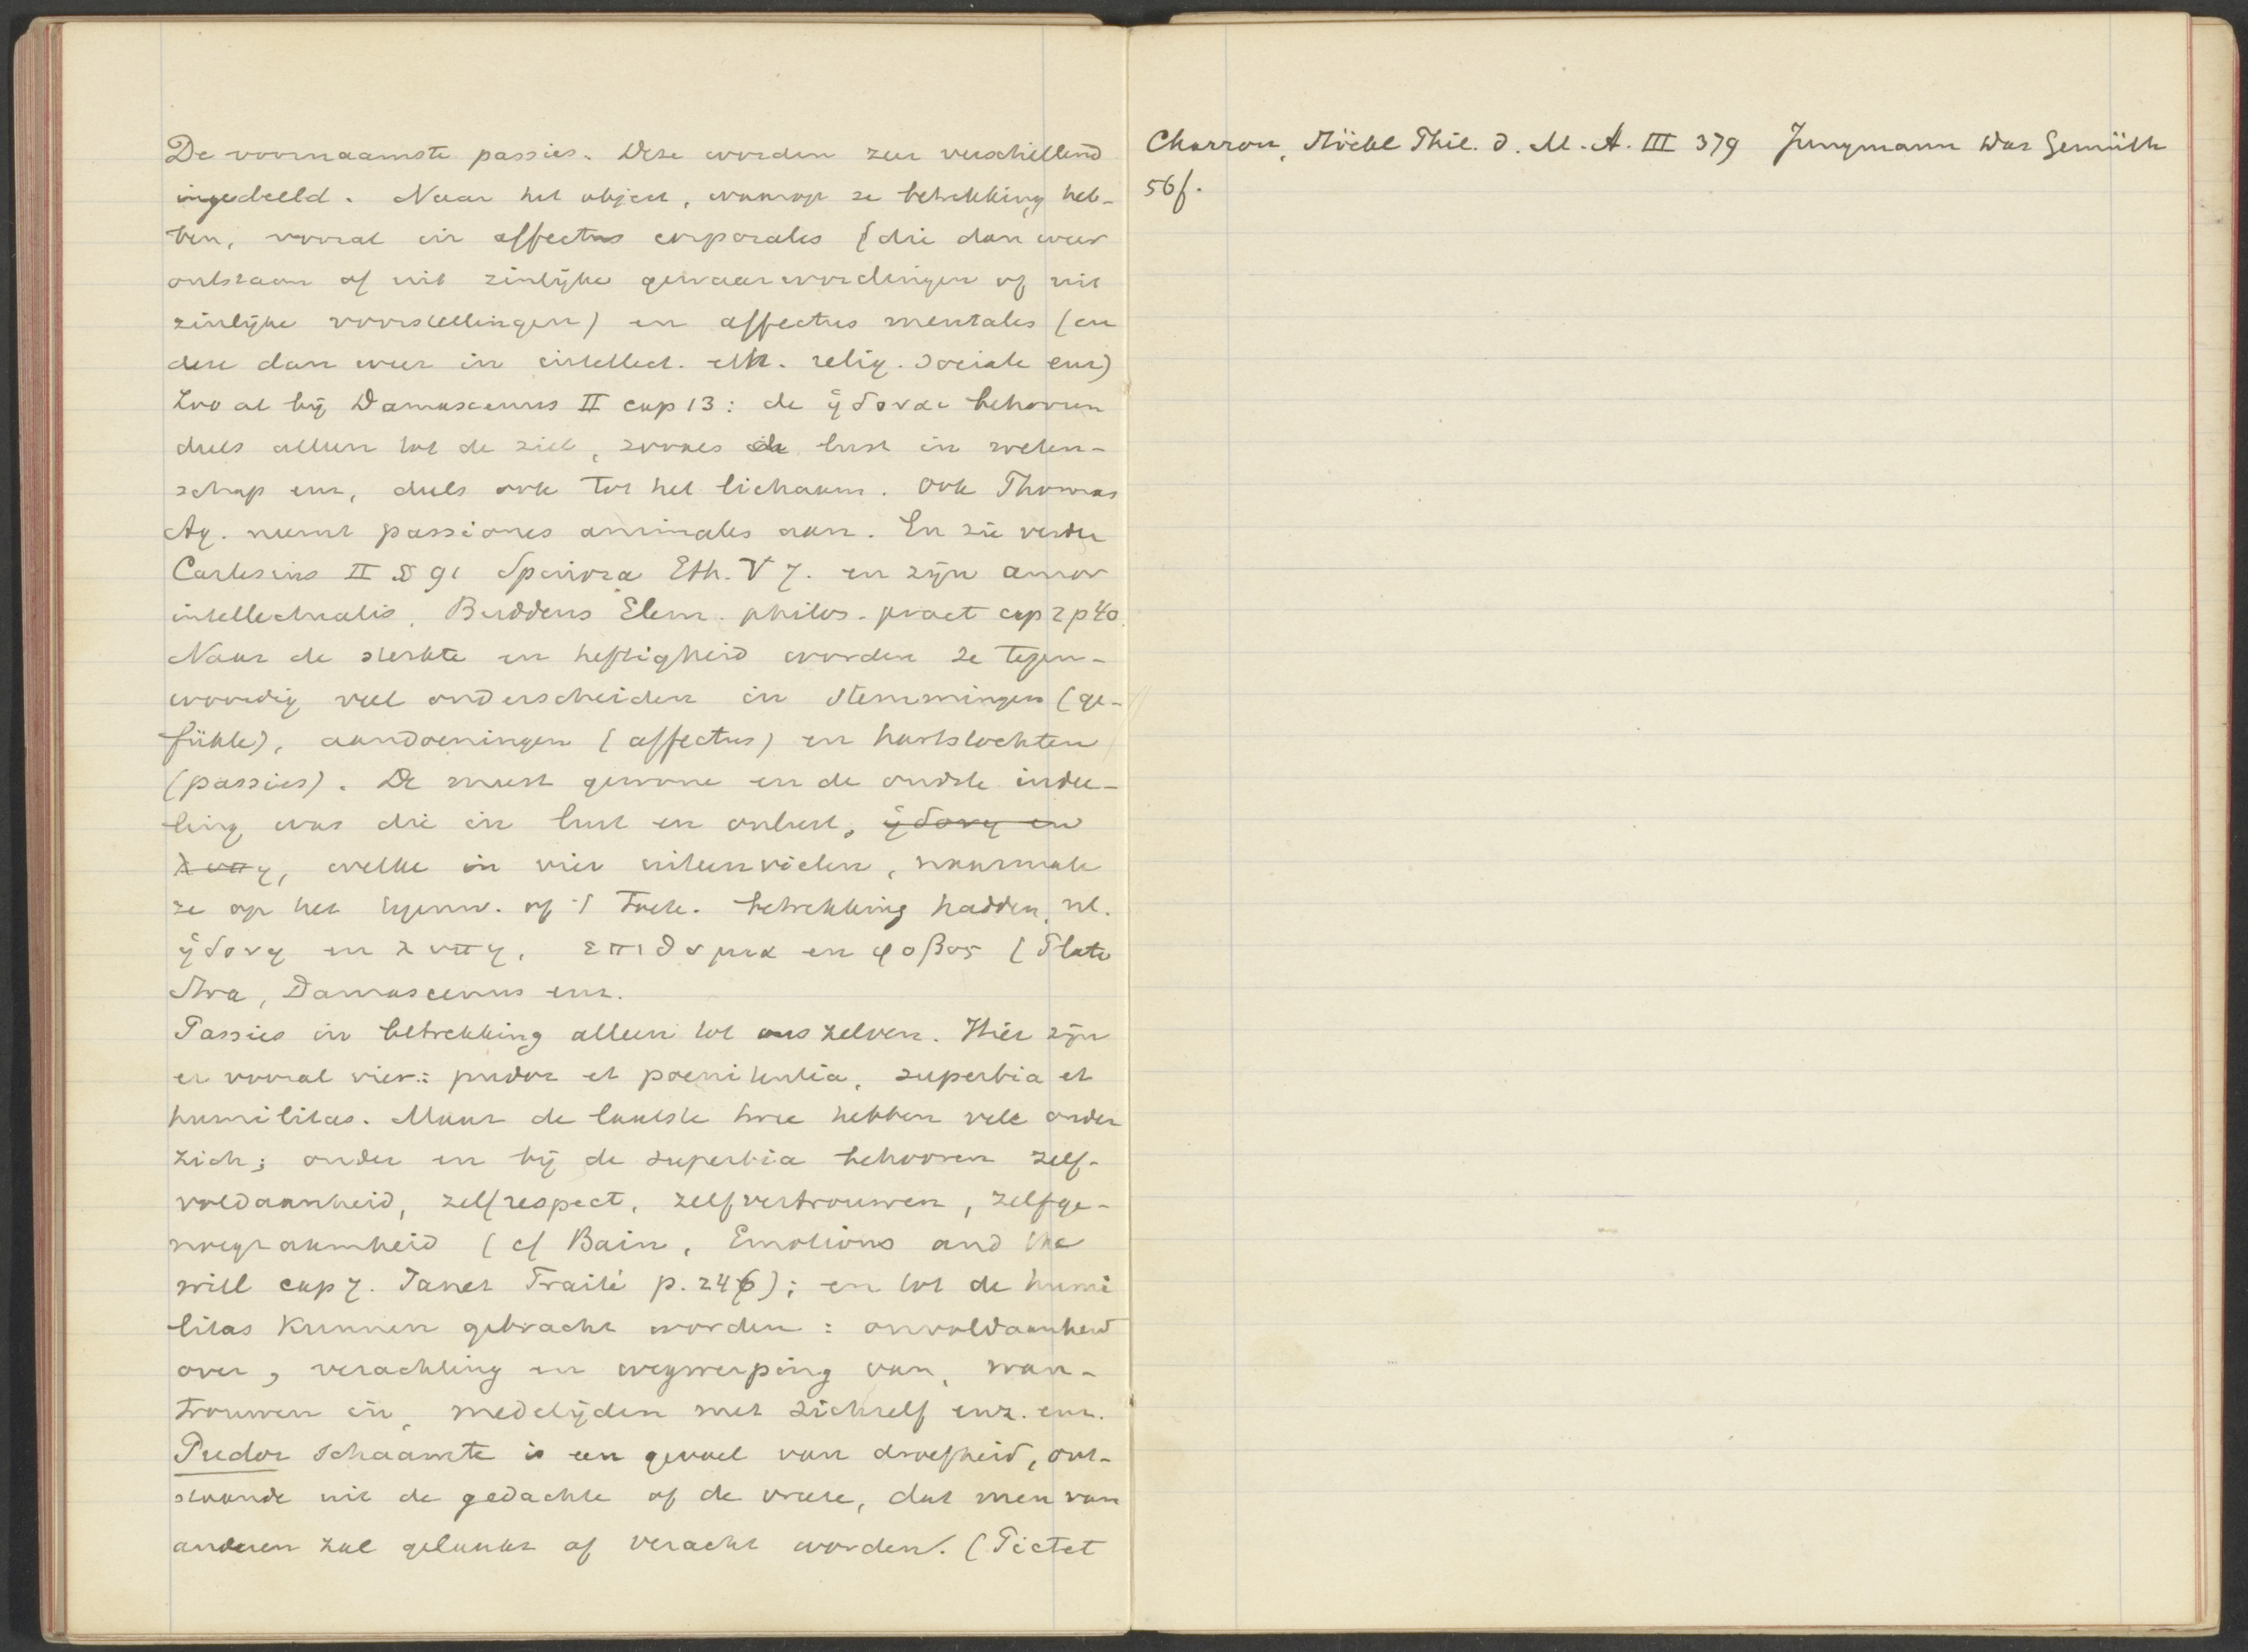 De voornaamste passies. Deze worden zeer verschillend
ingedeeld. Naar het object, waarop ze betrekking heb-
ben, vooral in affectus corporales (die dan weer
ontstaan of uit zinlijke gewaarwordingen of uit
zinlijke voorstellingen) en affectus mentales (en
deze dan weer in intellect. eth. relig. sociale enz)
Zoo al bij Damascenus II cap 13: de ἡδοναι behooren
deels alleen tot de ziel, zooals de lust in weten-
schap enz, deels ook tot het lichaam. Ook Thomas
Aq. neemt passiones animales aan. En zie verder
Cartesius II § 91 Spinoza Eth. V 7. en zijn amor
intellectualis, Buddeus Elem. philos. pract cap 2 p 40.
Naar de sterkte en heftigheid worden ze tegen-
woordig veel onderscheiden in stemmingen (ge-
fühle), aandoeningen (affectus) en hartstochten
(passies). De meest gewone en de oudste indee-
ling was die in lust en onlust, ἡδονη en
λυπη, welke in vier uiteenvielen, naarmate
ze op het tegenw. of 't toek. betrekking hadden, nl.
ἡδονη en λυπη, επιθυμια en φοβος (Plato
Stoa, Damascenus enz.
Passies in betrekking alleen tot ons zelven. Hier zijn
er vooral vier: pudor et poenitentia, superbia et
humilitas. Maar de laatste twee hebben vele onder
zich; onder en bij de superbia behooren zelf-
voldaanheid, zelfrespect, zelfvertrouwen, zelfge-
noegzaamheid (cf Bain, Emotions and the
will cap 7. Janet Traité p. 246); en tot de humi
litas kunnen gebracht worden: onvoldaanheid
over, verachting en wegwerping van, wan-
trouwen in, medelijden met zichzelf enz. enz.
Pudor schaamte is een gevoel van droefheid, ont-
staande uit de gedachte of de vreze, dat men van
anderen zal gelaakt of veracht worden. (Pictet
Charron, Stöckl Phil. d. M. A. III 379 Jungmann Das Gemüth
56f.